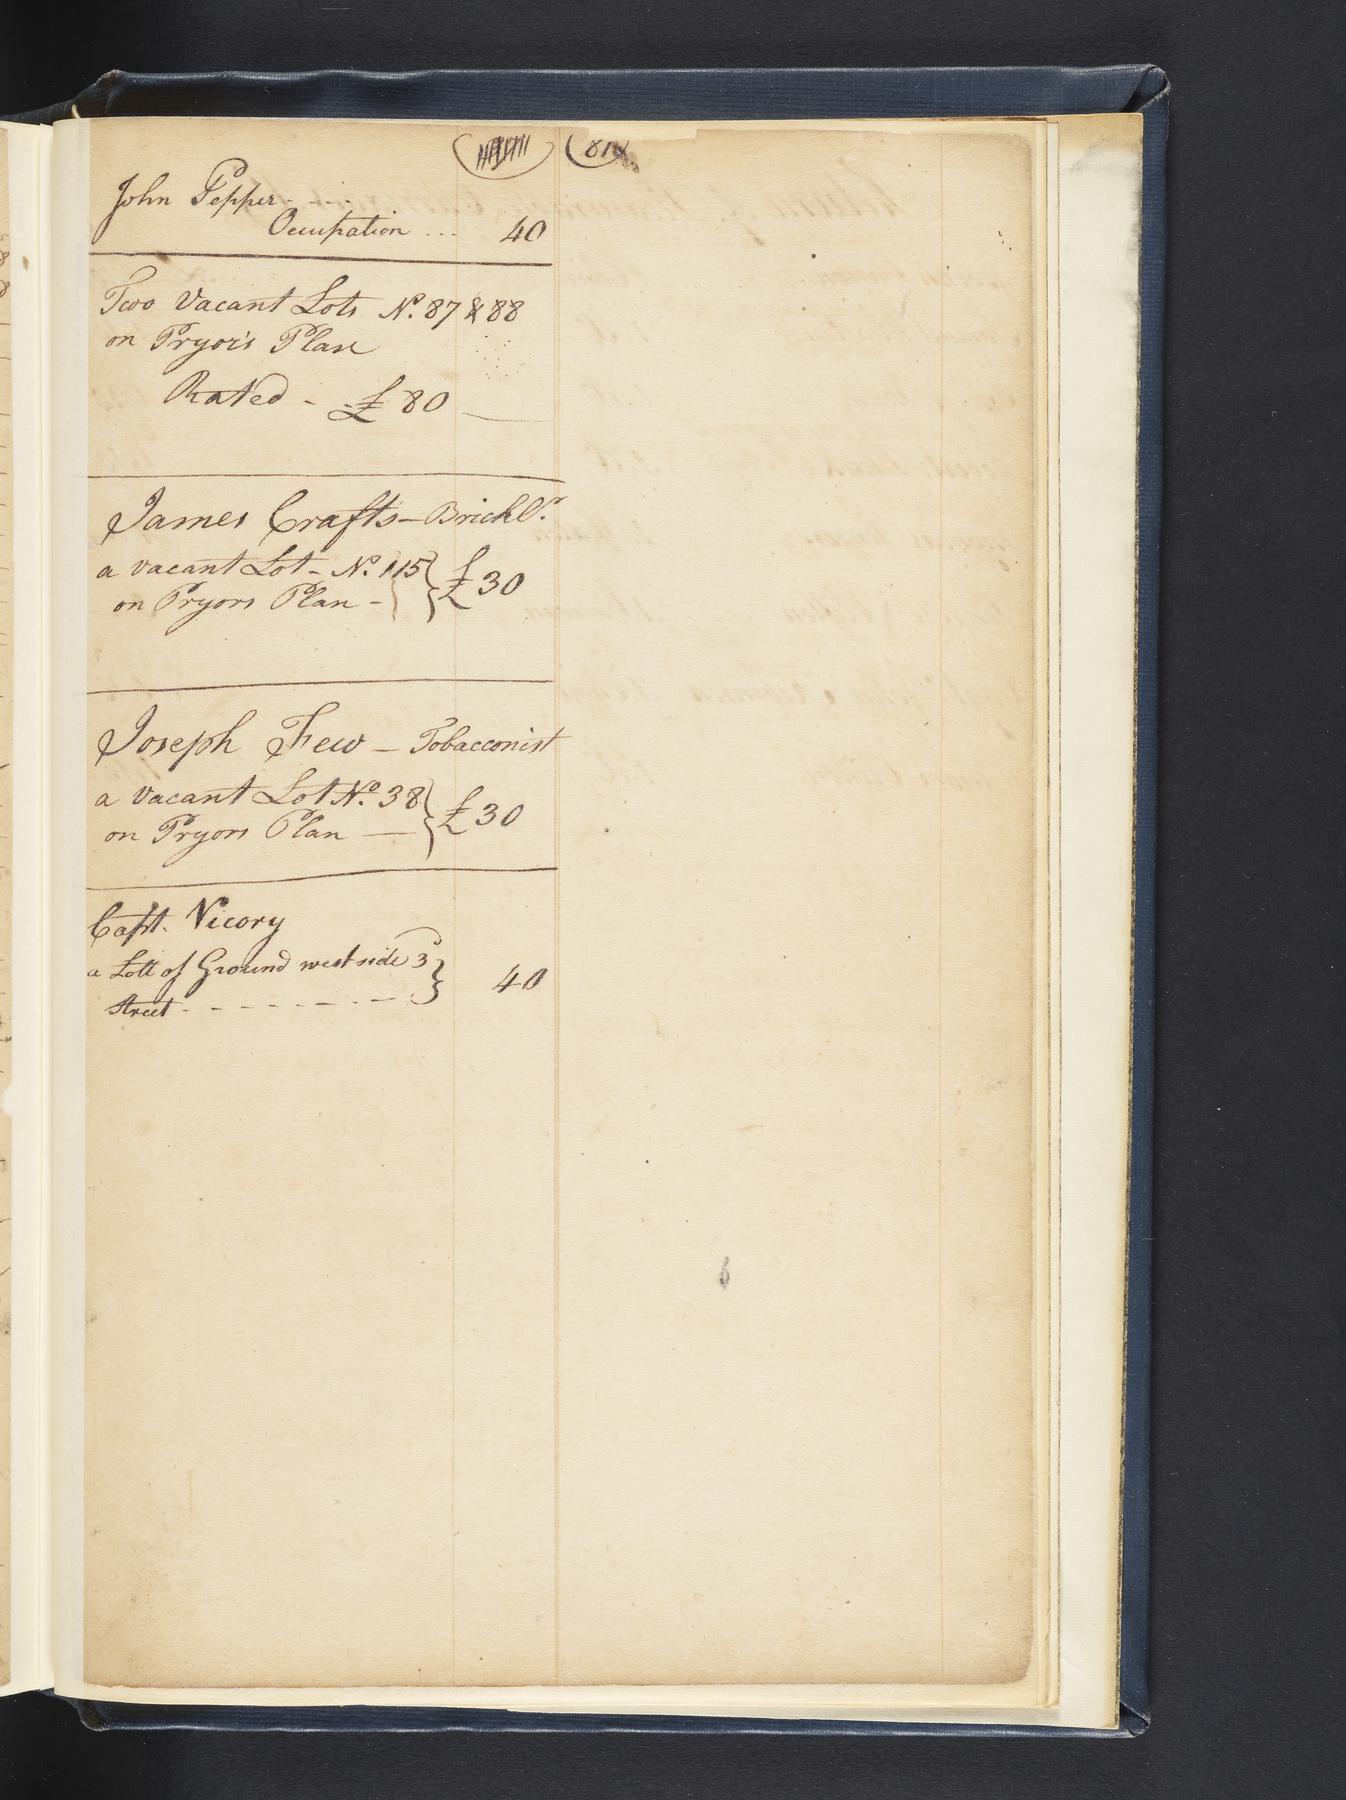 81
John Pepper - - - -
Occupation ... 40
Two Vacant Lots No. 87 & 88
on Pryor's Plan
Rated - - £ 80
James Crafts - Brickl.r
a vacant Lot - No. 115 } £ 30
on Pryors Plan -
Joseph Few - Tobacconist
a vacant Lot No. 38 } £ 30
on Pryors Plan —
Capt. Vicory
a Lott of Ground west side 3
Street - - - - - - - } 40
6